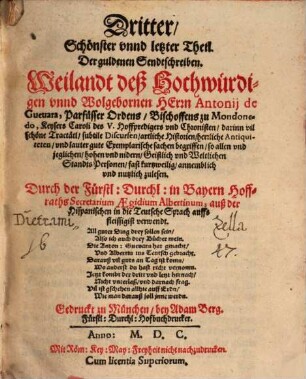 Dritter/
Schönster vnnd letzter Theil.
Der guldenen Sendtschreiben.
Weilandt deß Hochwürdi-
gen vnnd Wolgebornen HErrn Antonij de
Gueuara, Parfüsser Ordens / Bischoffens zu Mondone-
do, Keysers Caroli des V. Hoffpredigers vnd Chronisten / darinn vil
schöne Tractätl / subtile Discursen / artliche Historien / herrliche Antiqui-
teten / vnd lauter gute Exemplarische sachen begriffen / so allen vnd
jeglichen / hohen vnd nidern / Geistlich vnd Weltlichen
Stands Personen / fast kurtzweilig / annemblich
vnd nutzlich zulesen.
Durch der Fürstl: Durchl: in Bayern Hoff-
raths Secretarium Ægidium Albertinum, auß der
Hispanischen in die Teutsche Sprach auffs
fleissigist verwendt.
All guter Ding drey sollen sein /
Also ist auch drey Bücher
Die Anton: Gueuara hat gemacht /
Vnd Albertin ins Teutsch gebracht.
vnd darnach frag.
Gedruckt zu München / bey Adam Berg.
Fürstl: Durchl: Hofbuchdrucker.
Anno: M. D. C.
Mit Röm: Key: May: Freyheit nicht nachzudrucken.
Cum licentia Superiorum.